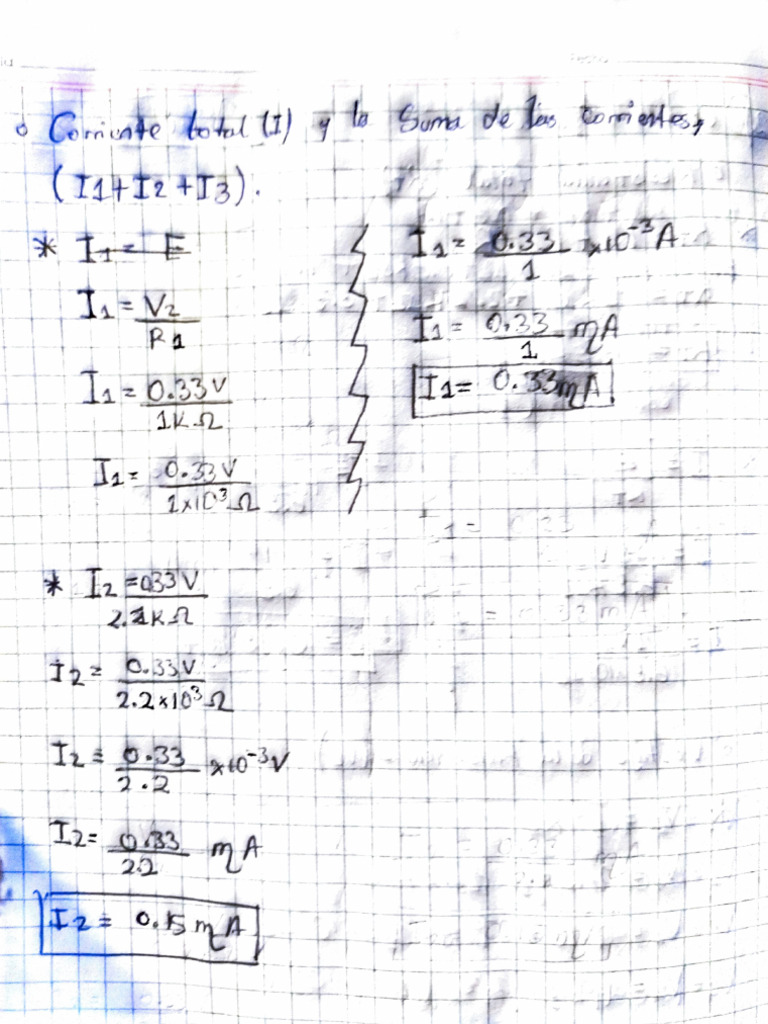 Corriente total (I) y la Suma de las corrientes,
(I1+I2+I3).
* I1= E
I1 = V2
R1
I1 = 0.33V
1KΩ
I1 = 0.33V
1x10³Ω
I1 = 0.33 x10⁻³A
1
I1 = 0.33 mA
1
I1= 0.33mA
* I2 =033V
2.2KΩ
I2 = 0.33V
2.2x10³Ω
I2 = 0.33 x10⁻³V
2.2
I2= 0.33 mA
2.2
I2 = 0.15mA